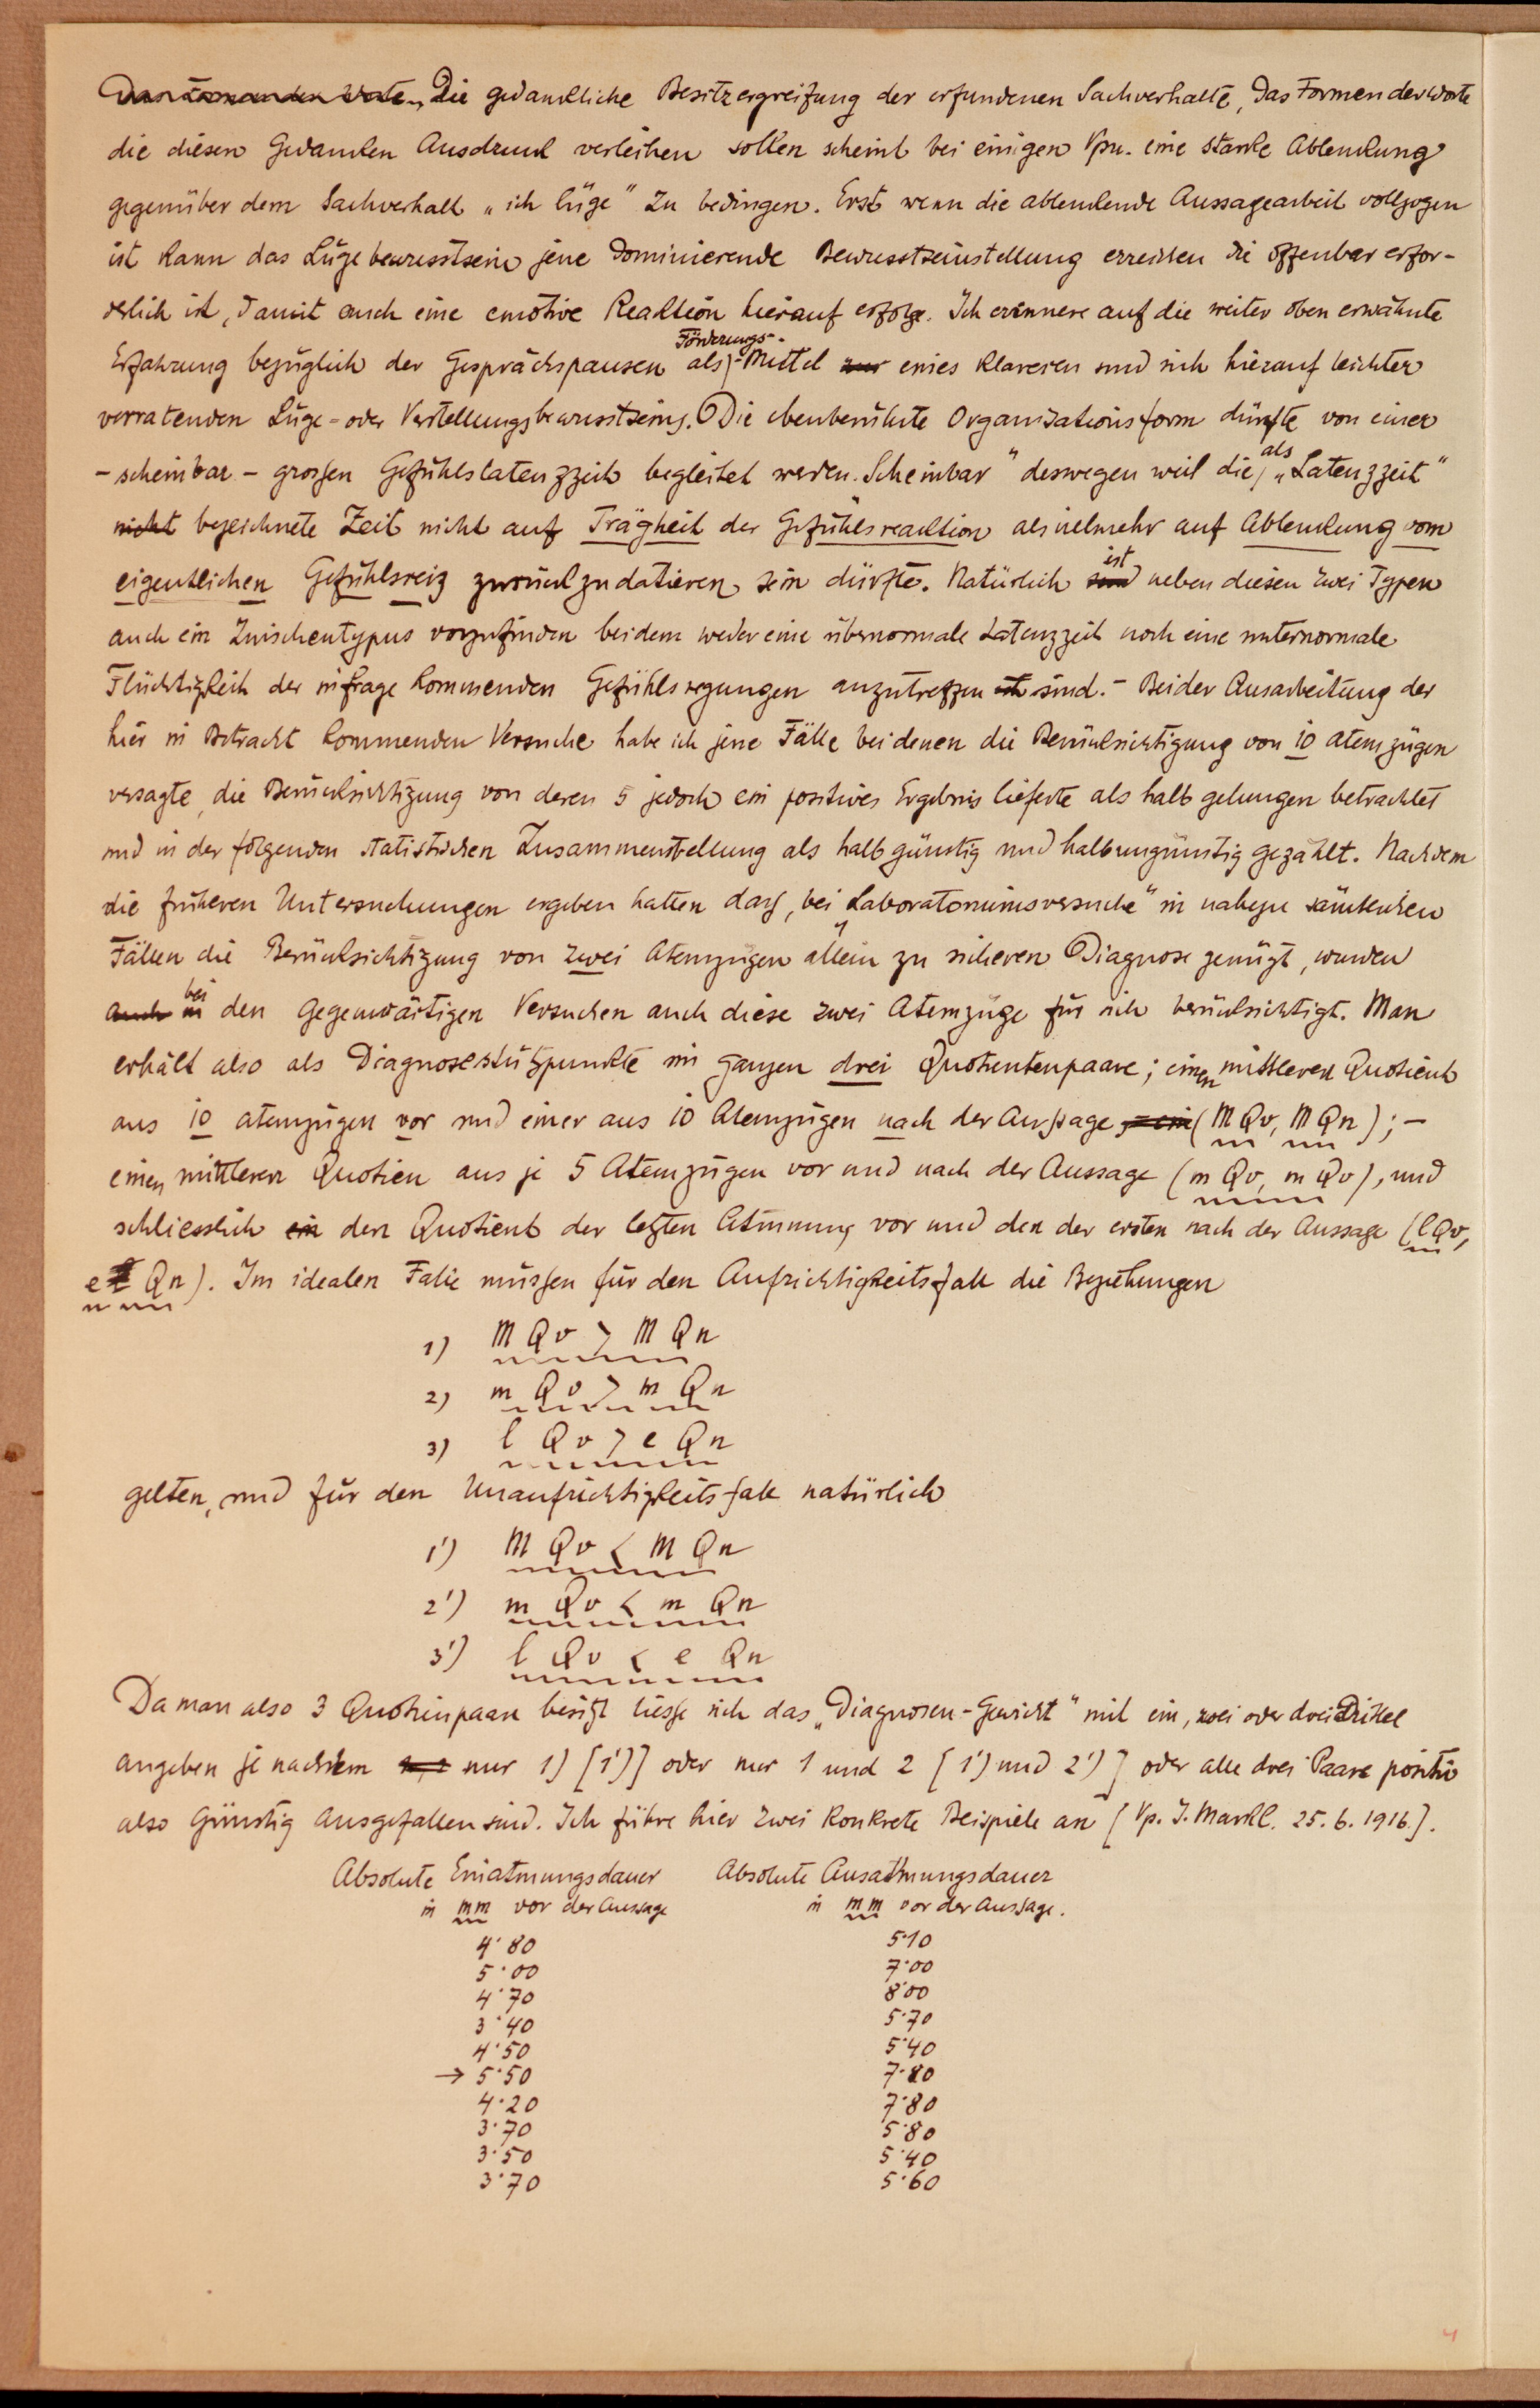 Die gedankliche Besitzergreifung der erfundenen Sachverhalte, das Formen der Worte
die diesen Gedanken Ausdruck verleihen sollen scheint bei einigen Vpn. eine starke Ablenkung
gegenüber dem Sachverhalt „ich lüge" zu bedingen. Erst wenn die ablenkende Aussagearbeit vollzogen
ist kann das Lügebewusstsein jene dominierende Bewusstseinstellung erreichen die offenbar erfor-
derlich ist, damit auch eine emotive Reaktion hierauf erfolge. Ich erinnere auf die weiter oben erwähnte
Erfahrung bezüglich der Gesprächspausen als Förderungs-Mittel eines klareren und sich hierauf leichter
verratenden Lüge- oder Verstellungsbewusstseins. Die ebenberührte Organisationsform dürfte von einer
- scheinbar - grossen Gefühlslatenzzeit begleitet werden. Scheinbar" deswegen weil die als „Latenzzeit"
nicht bezeichnete Zeit nicht auf Trägheit der Gefühlsreaktion als vielmehr auf Ablenkung vom
eigentlichen Gefühlsreiz zurückzudatieren sein dürfte. Natürlich ist neben diesen zwei Typen
auch ein Zwischentypus vorzufinden bei dem weder eine übernormale Latenzzeit noch eine unternormale
Flüchtigkeit der infrage kommenden Gefühlsregungen anzutreffen sind. - Bei der Ausarbeitung der
hier in Betracht kommenden Versuche habe ich jene Fälle bei denen die Berücksichtigung von 10 Atemzügen
versagte, die Berücksichtigung von deren 5 jedoch ein positives Ergebnis lieferte als halb gelungen betrachtet
und in der folgenden statistischen Zusammenstellung als halbgünstig und halbungünstig gezählt. Nachdem
die früheren Untersuchungen ergeben hatten dass, bei „Laboratoriumsversuche" in nahezu sämtlichen
Fällen die Berücksichtigung von zwei Atemzügen allein zu sicheren Diagnose genügt, wurden
auch bei den gegenwärtigen Versuchen auch diese zwei Atemzüge für sich berücksichtigt. Man
erhält also als Diagnosestützpunkte im ganzen drei Quotientenpaare; einen mittleren Quotient
aus 10 Atemzügen vor und einer aus 10 Atemzügen nach der Aussage (M Qv, M Qn); -
einen mittleren Quotien aus je 5 Atemzügen vor und nach der Aussage (m Qv, m Qv), und
schliesslich ein den Quotient der letzten Atmung vor und den der ersten nach der Aussage (l Qv,
e Qn). Im idealen Falle müssen für den Aufrichtigkeitsfall die Beziehungen
1) M Qv > M Qn
2) m Qv > m Qn
3) l Qv > e Qn
gelten, und für den Unaufrichtigkeitsfall natürlich
1') M Qv < M Qn
2') m Qv < m Qn
3') l Qv < e Qn
Da man also 3 Quotienpaare besitzt liesse sich das „Diagnosen-Gewicht" mit ein, zwei oder drei Drittel
angeben je nachdem nur 1) [1')] oder nur 1 und 2 [1') und 2')] oder alle drei Paare positiv
also günstig ausgefallen sind. Ich führe hier zwei konkrete Beispiele an [Vp. J. Markl. 25. 6. 1916.].
Absolute Einatmungsdauer Absolute Ausatmungsdauer
in mm vor der Aussage in mm vor der Aussage.
4·80 5·10
5·00 7·00
4·70 8·00
3·40 5·70
4·50 5·40
→ 5·50 7·80
4·20 7·80
3·70 5·80
3·50 5·40
3·70 5·60
4